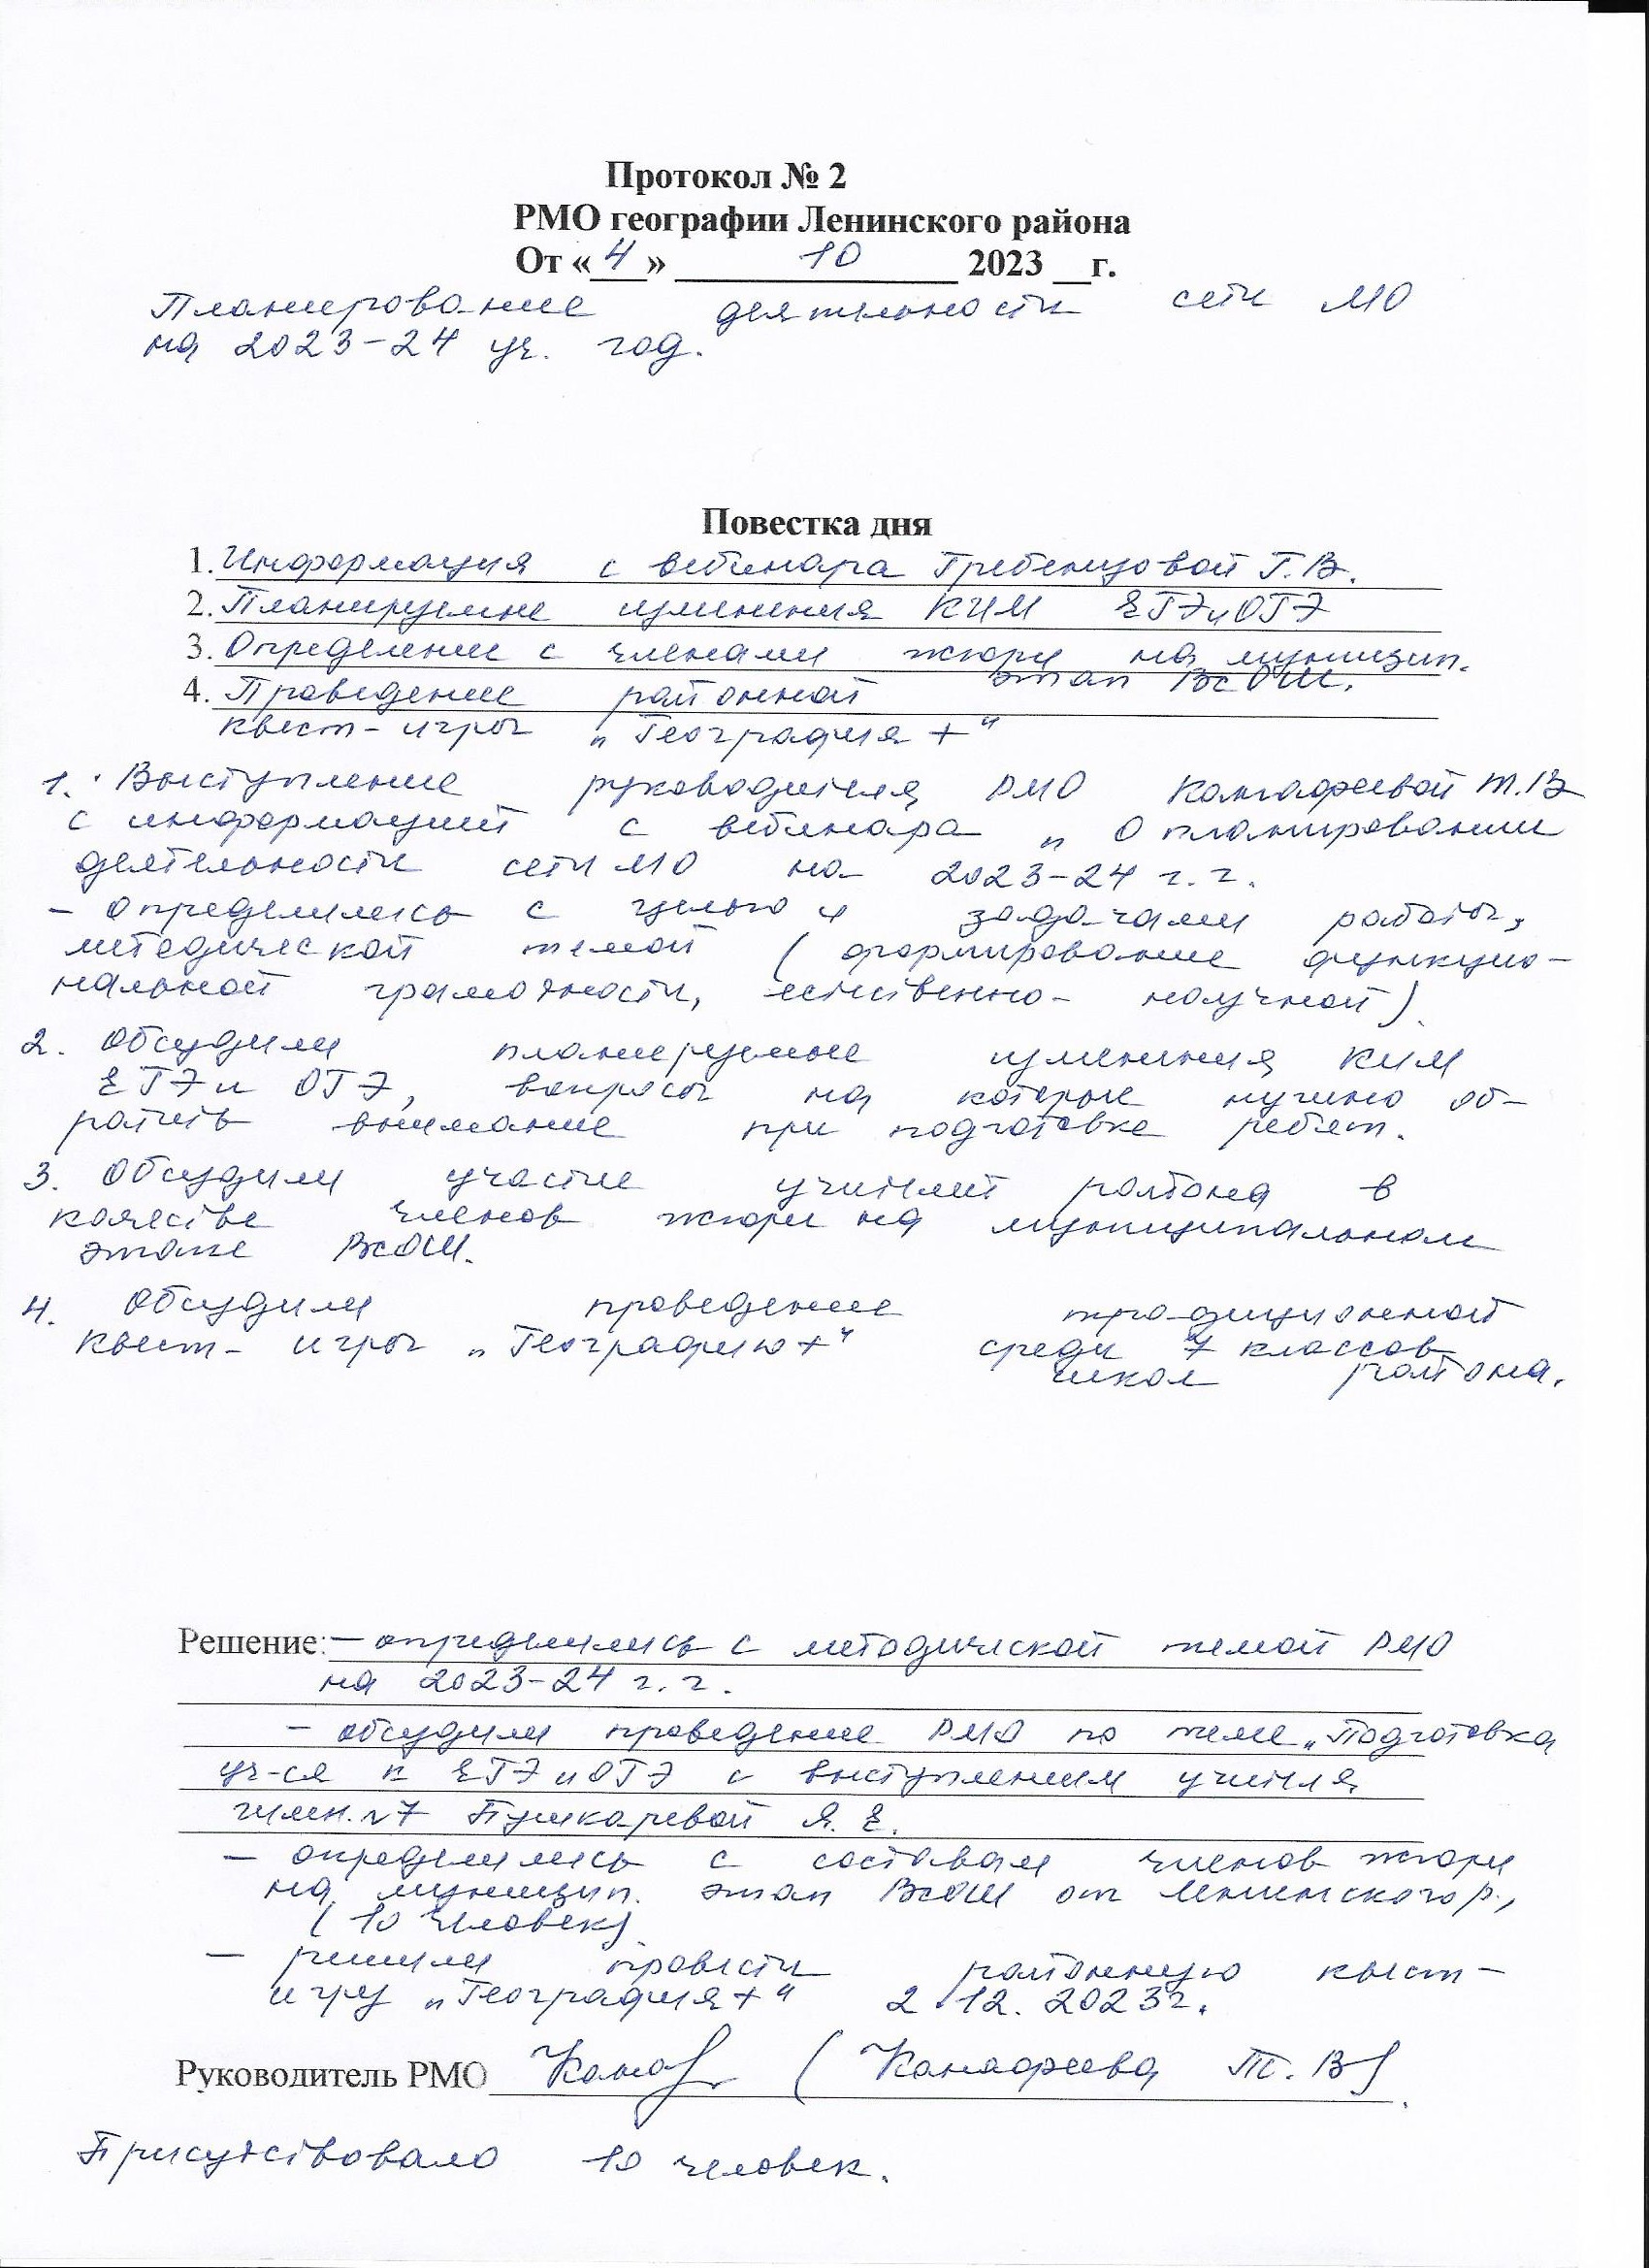 Протокол № 2
РМО географии Ленинского района
От « 4 » 10 2023 __г.
Планирование деятельности сети МО
на 2023-24 уч. год.
Повестка дня
1. Информация с вебинара Гребенцовой Г.В.
2. Планируемые изменения КИМ ЕГЭ и ОГЭ
3. Определение с членами жюри на муницип.
этап ВсОШ.
4. Проведение районной
квест-игры „География +"
1. Выступление руководителя РМО Канафеевой Т.В
с информацией с вебинара „О планировании
деятельности сети МО на 2023-24 г.г.
- определились с целью и задачами работы,
методической темой (формирование функцио-
нальной грамотности, естественно-научной).
2. Обсудили планируемые изменения КИМ
ЕГЭ и ОГЭ, вопросы на которые нужно об-
ратить внимание при подготовке ребят.
3. Обсудили участие учителей района в
качестве членов жюри на муниципальном
этапе ВсОШ.
4. Обсудили проведение традиционной
квест-игры „Географию+" среди 7 классов
школ района.
Решение: - определились с методической темой РМО
на 2023-24 г.г.
- обсудили проведение РМО по теме „Подготовка
уч-ся к ЕГЭ и ОГЭ с выступлением учителя
гимн. №7 Пушкаревой Я. Е.
- определились с составом членов жюри
на муницип. этап ВсОШ от Ленинского р.,
(10 человек)
- решили провести районную квест-
игру „География+" 2.12.2023г.
Руководитель РМО (Канафеева Т. В).
Присутствовало 10 человек.